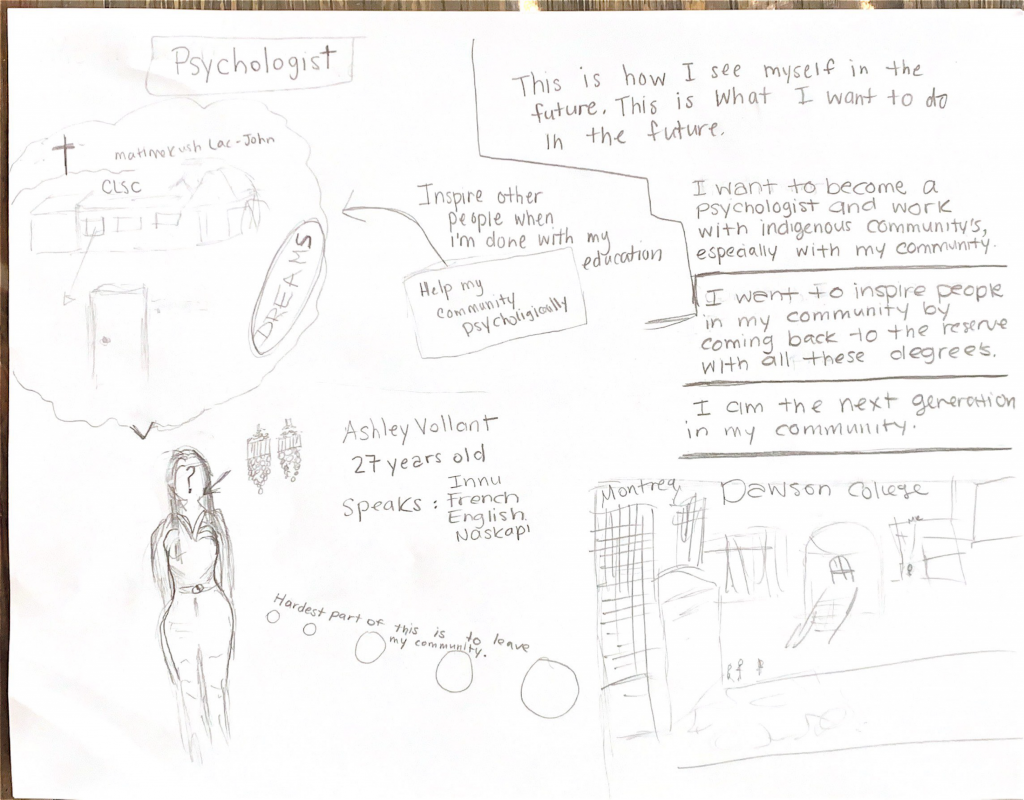 Psychologist
This is how I see myself in the
future. This is what I want to do
in the future.
matimekush Lac-John
CLSC
DREAMS
Inspire other
people when
i'm done with my
education
Help my
community
psycholigically
I want to become a
psychologist and work
with indigenous community's,
especially with my community.
I want to inspire people
in my community by
coming back to the reserve
with all these degrees.
I am the next generation
in my community.
Ashley Vollant
27 years old
Speaks : Innu
French
English
Naskapi
?
Hardest part of this is to leave
my community.
Montreal
Dawson College